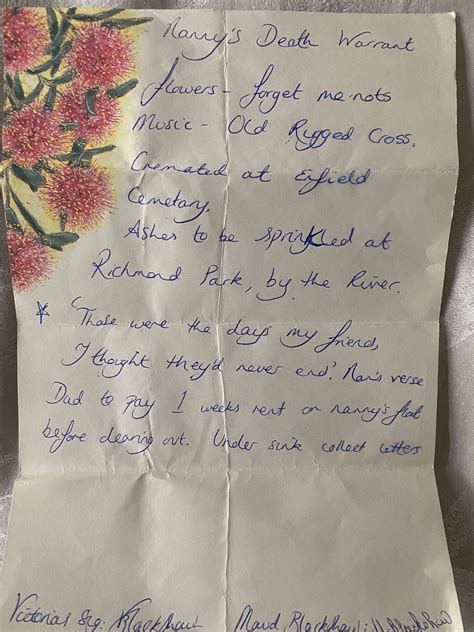 Nanny's Death Warrant
flowers - forget me-nots
Music - Old Rugged Cross.
Cremated at Enfield
Cemetary.
Ashes to be sprinkled at
Richmond Park, by the River.
* 'Those were the days my friend,
I thought they'd never end'. Nan's verse
Dad to pay 1 weeks rent on nanny's flat
before clearing out. Under sink collect letters
Victorias Sig: Blackshaw Maud Blackshaw: